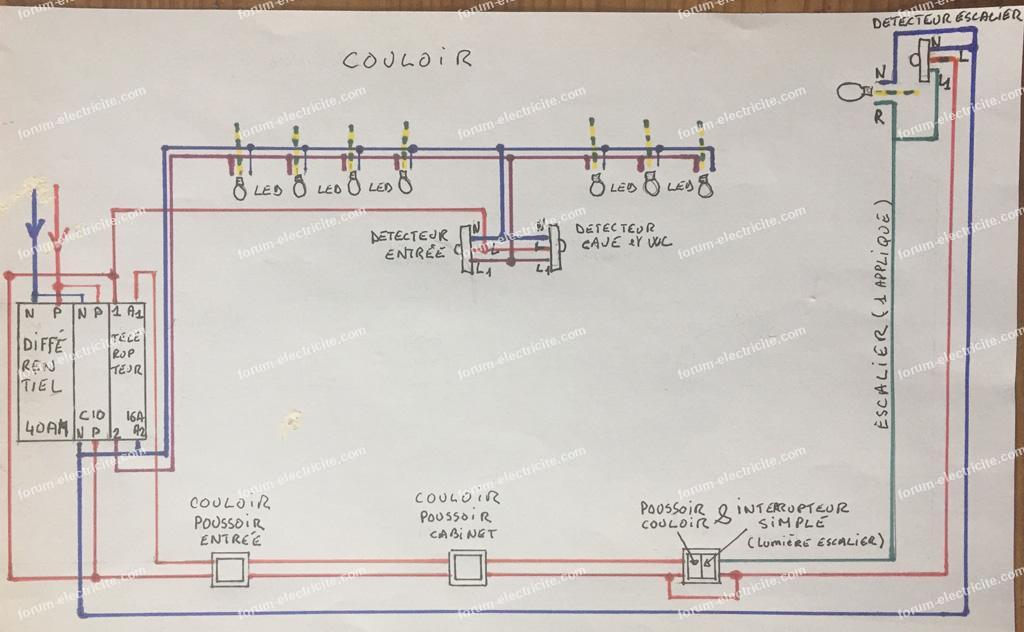 COULOIR
DETECTEUR ESCALIER
N
L
L1
N
R
LED
LED
LED
LED
LED
DETECTEUR
ENTRÉE
N
L
L1
N
L
L1
DETECTEUR
CAVE
ESCALIER (1 APPLIQUE)
N P
DIFFÉ
REN
TIEL
40A
N P
C10
N P
1 A1
TELE
RUP
TEUR
16A
2 A2
COULOIR
POUSSOIR
ENTRÉE
COULOIR
POUSSOIR
CABINET
POUSSOIR
COULOIR
&
INTERRUPTEUR
SIMPLE
(LUMIÈRE ESCALIER)
forum-electricite.com